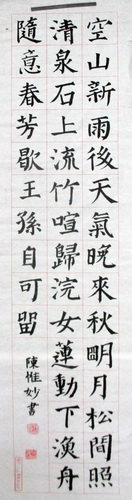 空山新雨後天氣晚來秋朙月松間照
清泉石上流竹喧歸浣女蓮動下漁舟
隨意春芳歇王孫自可留
陳惟妙書